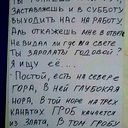 Заставляешь и в субботу
выходить нас на работу,
Аль откажешь мне в ответе
Не видал ли где на свете
ты зарплаты годовой?
Я ищу её...
- Постой, есть на севере
гора, в ней глубокая
нора, в той норе на трех
канатах гроб качается
из злата, в том гробу